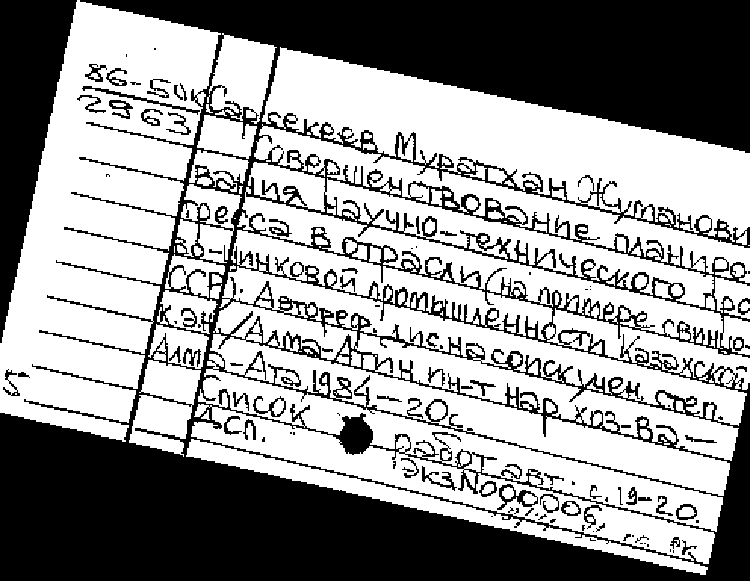 86-50к
2963
Сарсекеев, Муратхан Жуманови
Совершенствование планиро-
вания научно-технического про
гресса в отрасли (на примере свинцо-
во-цинковой промышленности Казахской
ССР): Автореф. дис. на соиск. учен. степ.
к.э.н. / Алма-Атин. ин-т нар. хоз-ва. —
Алма-Ата, 1984. — 20с.
Список работ авт.: с. 19-20.
Дсп. Экз. N000006.
5